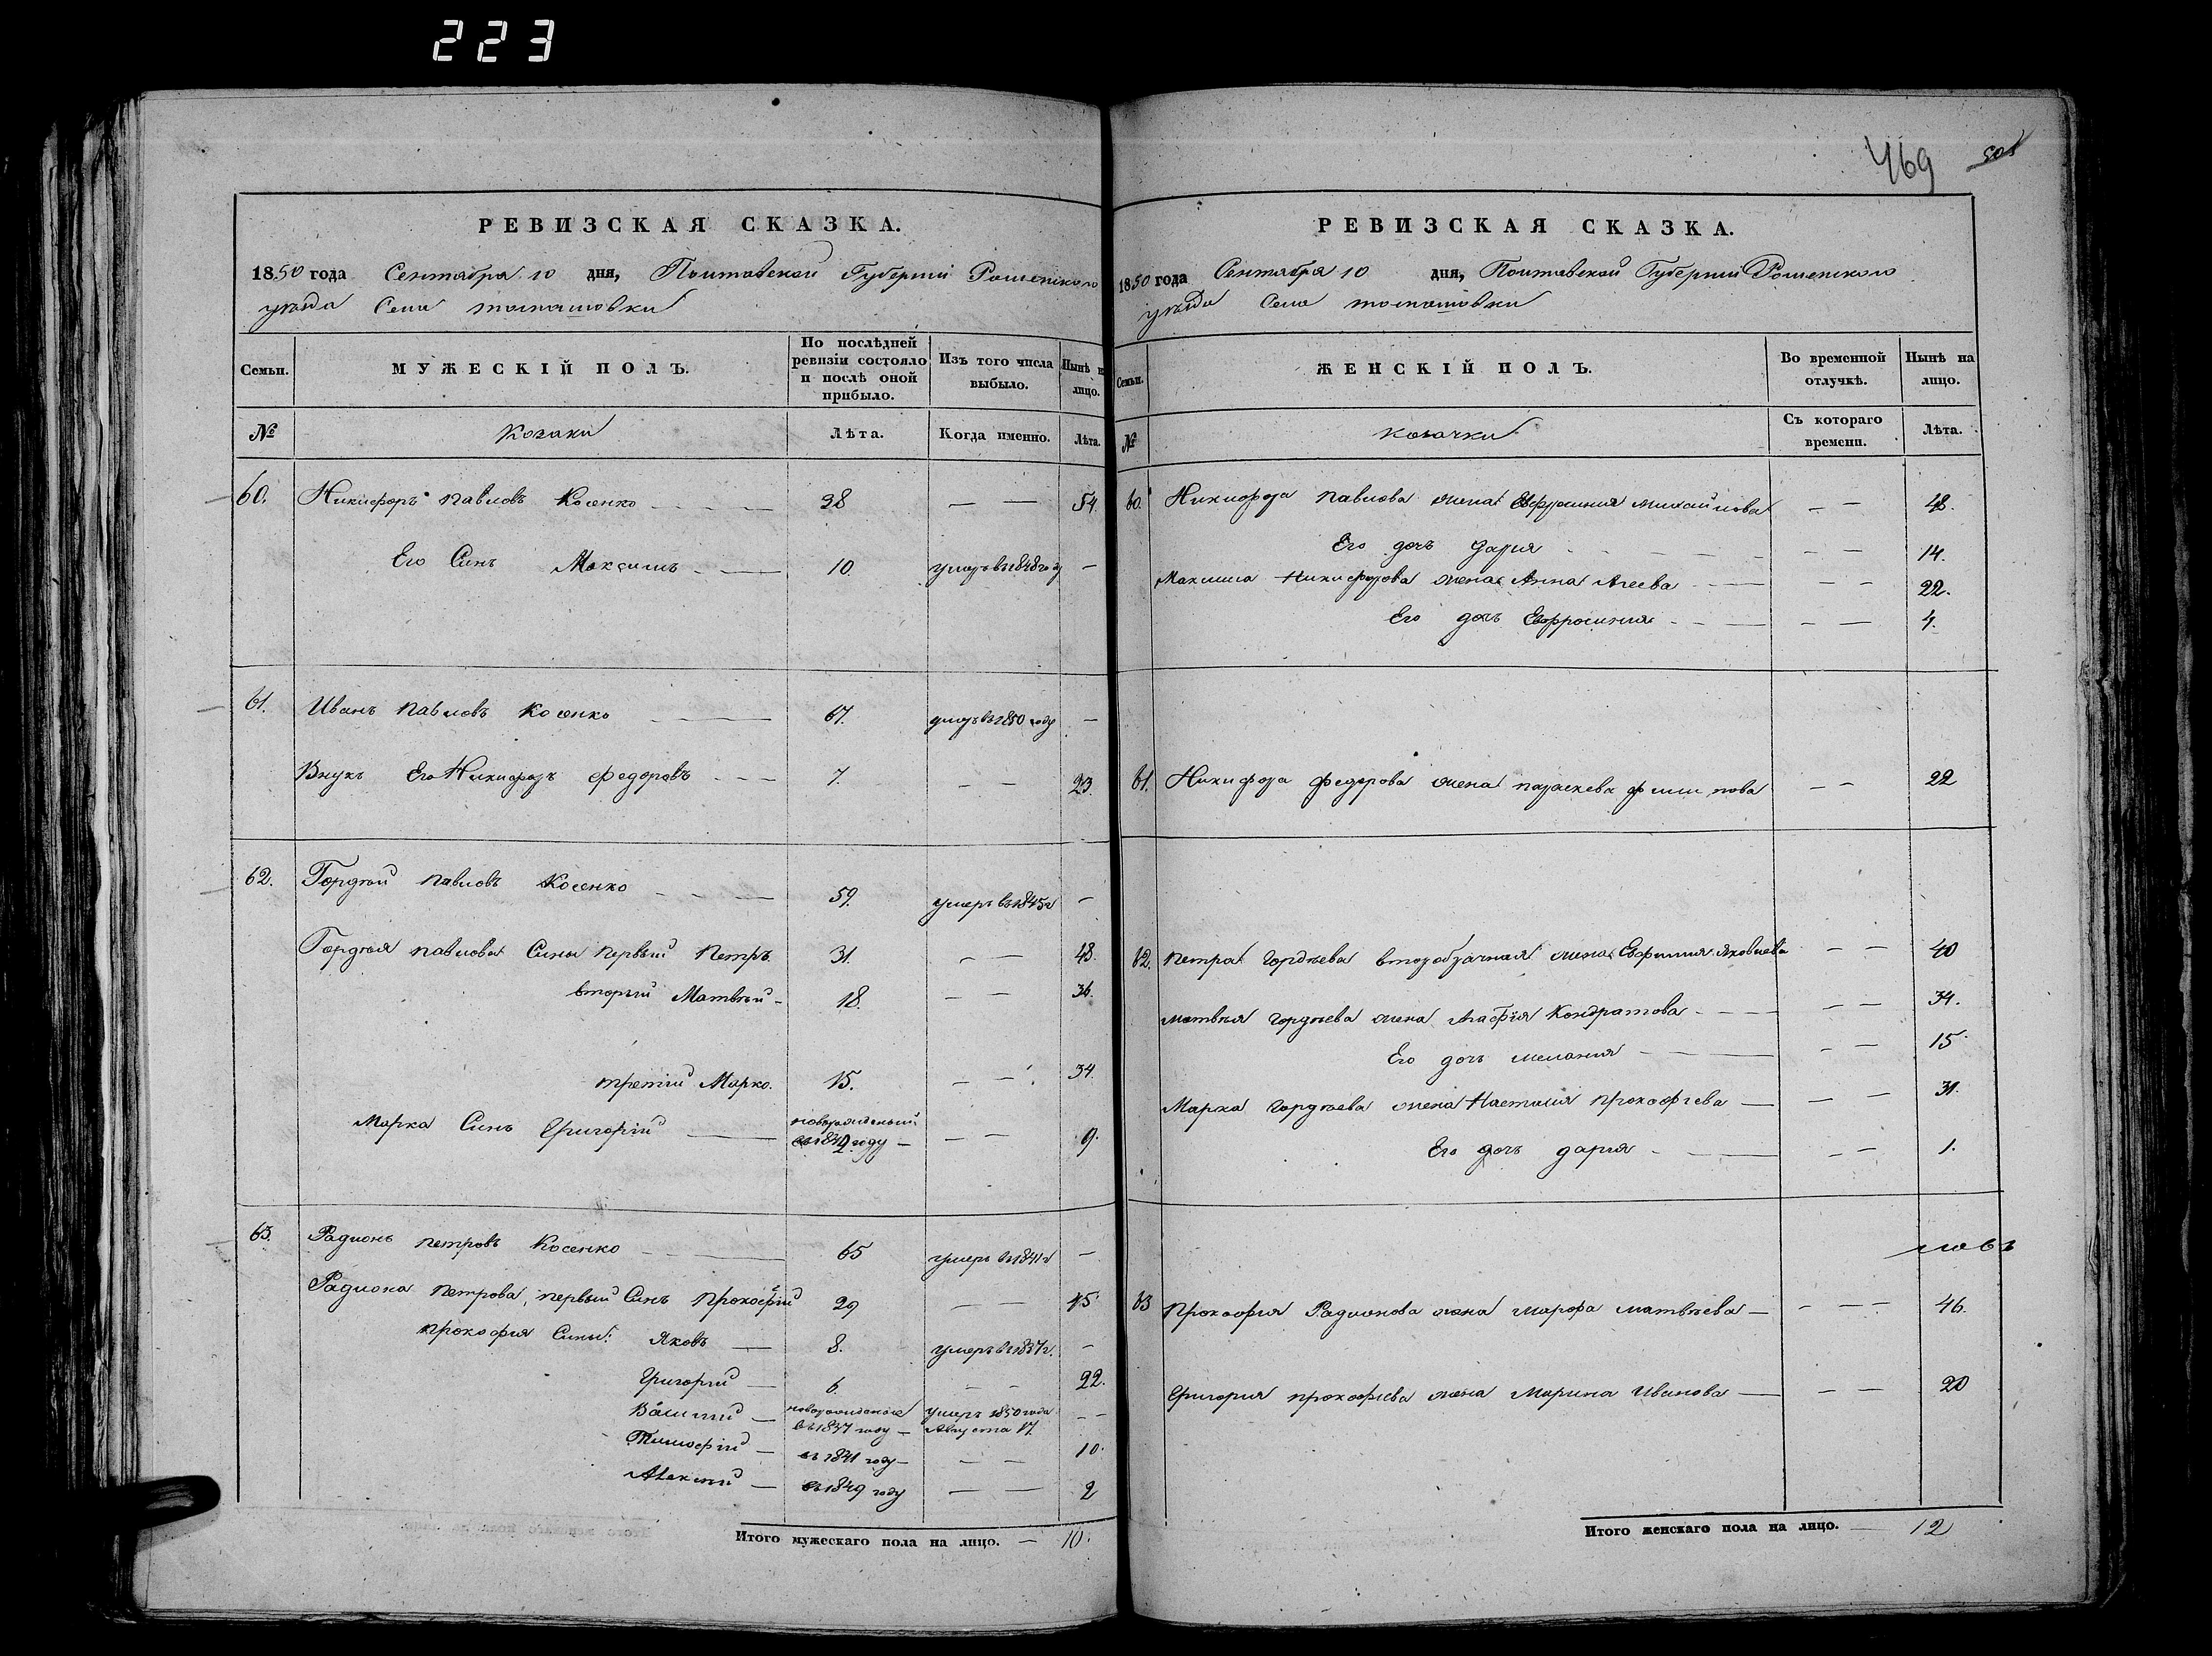 223
469 505
РЕВИЗСКАЯ СКАЗКА.
1850 года Сентября 10 дня, Полтавской Губернии Роменского
уѣзда Села толпаховки
Семьи. МУЖЕСКІЙ ПОЛЪ. По послѣдней ревизіи состояло и послѣ оной прибыло. Изъ того числа выбыло. Нынѣ на лицо.
№ Козаки Лѣта. Когда именно. Лѣта.
60. Никифоръ павловъ Косенко 38 — — 54.
Его Синъ Максимъ 10. умеръ въ 1848 году —
61. Иванъ павловъ Косенко 67. умеръ въ 1850 году —
Внукъ Его Никифоръ федоровъ 7. — — 23.
62. Гордѣй павловъ Косенко 59. умеръ въ 1845 г —
Гордѣя павлова Сины первый Петръ 31. — — 48.
вторый Матвѣй 18. — — 36.
третій Марко. 15. — — 34.
Марка Синъ Григорій новорожденый въ 1842 году — — — 9.
63. Радионъ петровъ Косенко 65 умеръ в 1841 г —
Радиона петрова, первый Синъ Прокофій 29 — — 45
прокофия Сины: Яковъ 8. умеръ в 1837 г. —
Григорий 6. — — 22.
Василий новорожденые въ 1837 году — умеръ 1850 года Августа 17. — —
Тимофій въ 1841 году — — — 10.
Алексѣй въ 1849 году — — 2
Итого мужескаго пола на лицо. — 10.
РЕВИЗСКАЯ СКАЗКА.
1850 года Сентября 10 дня, Полтавской Губернии Роменского
уѣзда Села
Семьи. ЖЕНСКІЙ ПОЛЪ. Во временной отлучкѣ. Нынѣ на лицо.
№ козачки Съ котораго времени. Лѣта.
60. Никифора павлова жена Евфросиния михайлова — — 48.
Его дочь дария — — 14.
Максима Никифорова жена Анна Агеева — — 22.
Его дочь Евфросиния — — 4.
61. Никифора федорова жена параскева филипова — — 22
62. петра гордѣева второбрачная жена Евфимия Яковлева — — 40
матвѣя гордѣева жена Агафія Кондратова — — 34.
Его дочь мелания — — 15.
Марка гордѣева жена Настасия прокофіева — — 31.
Его дочь дария — — 1.
63 Прокофия Радионова жена марфа матвѣева — — — 46.
Григория прокофіева жена Марина Иванова — — — 20
Итого женскаго пола на лицо. — 12